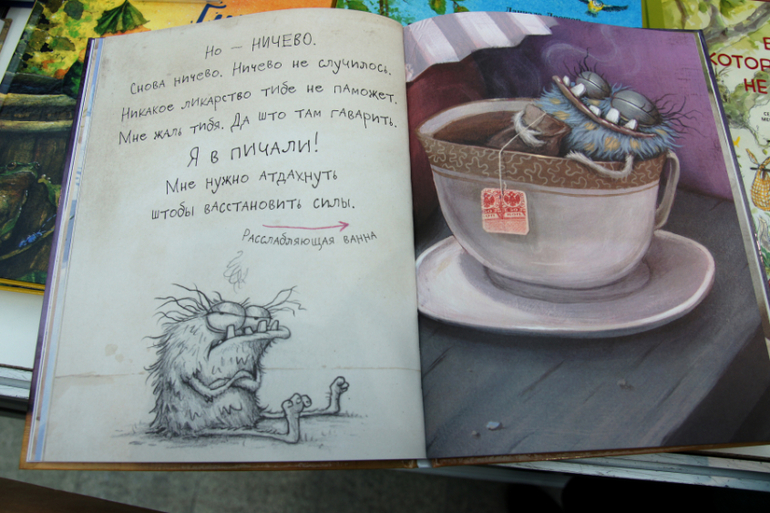 Но – НИЧЕВО.
Снова ничево. Ничево не случилось.
Никакое ликарство тибе не паможет.
Мне жаль тибя. Да што там гаварить.
Я в ПИЧАЛИ!
Мне нужно атдахнуть
штобы васстановить силы.
Расслабляющая ванна
КОТОР
НЕ